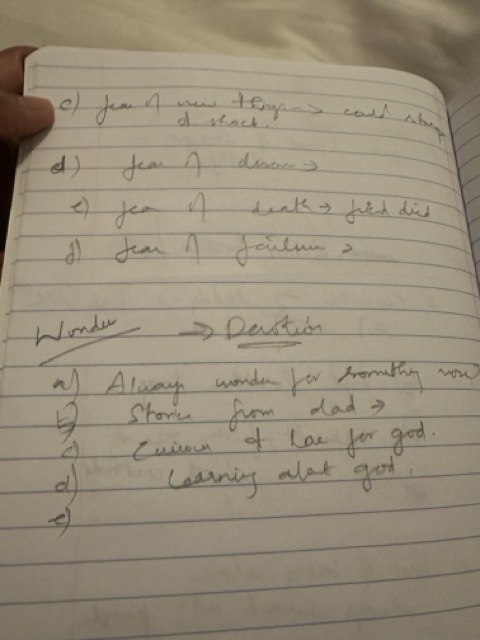 c) fear of new things → could
d shock.
d) fear of →
e) fear of death → died
f) fear of failure →
Wonder → Devotion
a) Always wonder for something more
b) Stories from dad →
c) Curious & love for god.
d) Learning about god.
e)